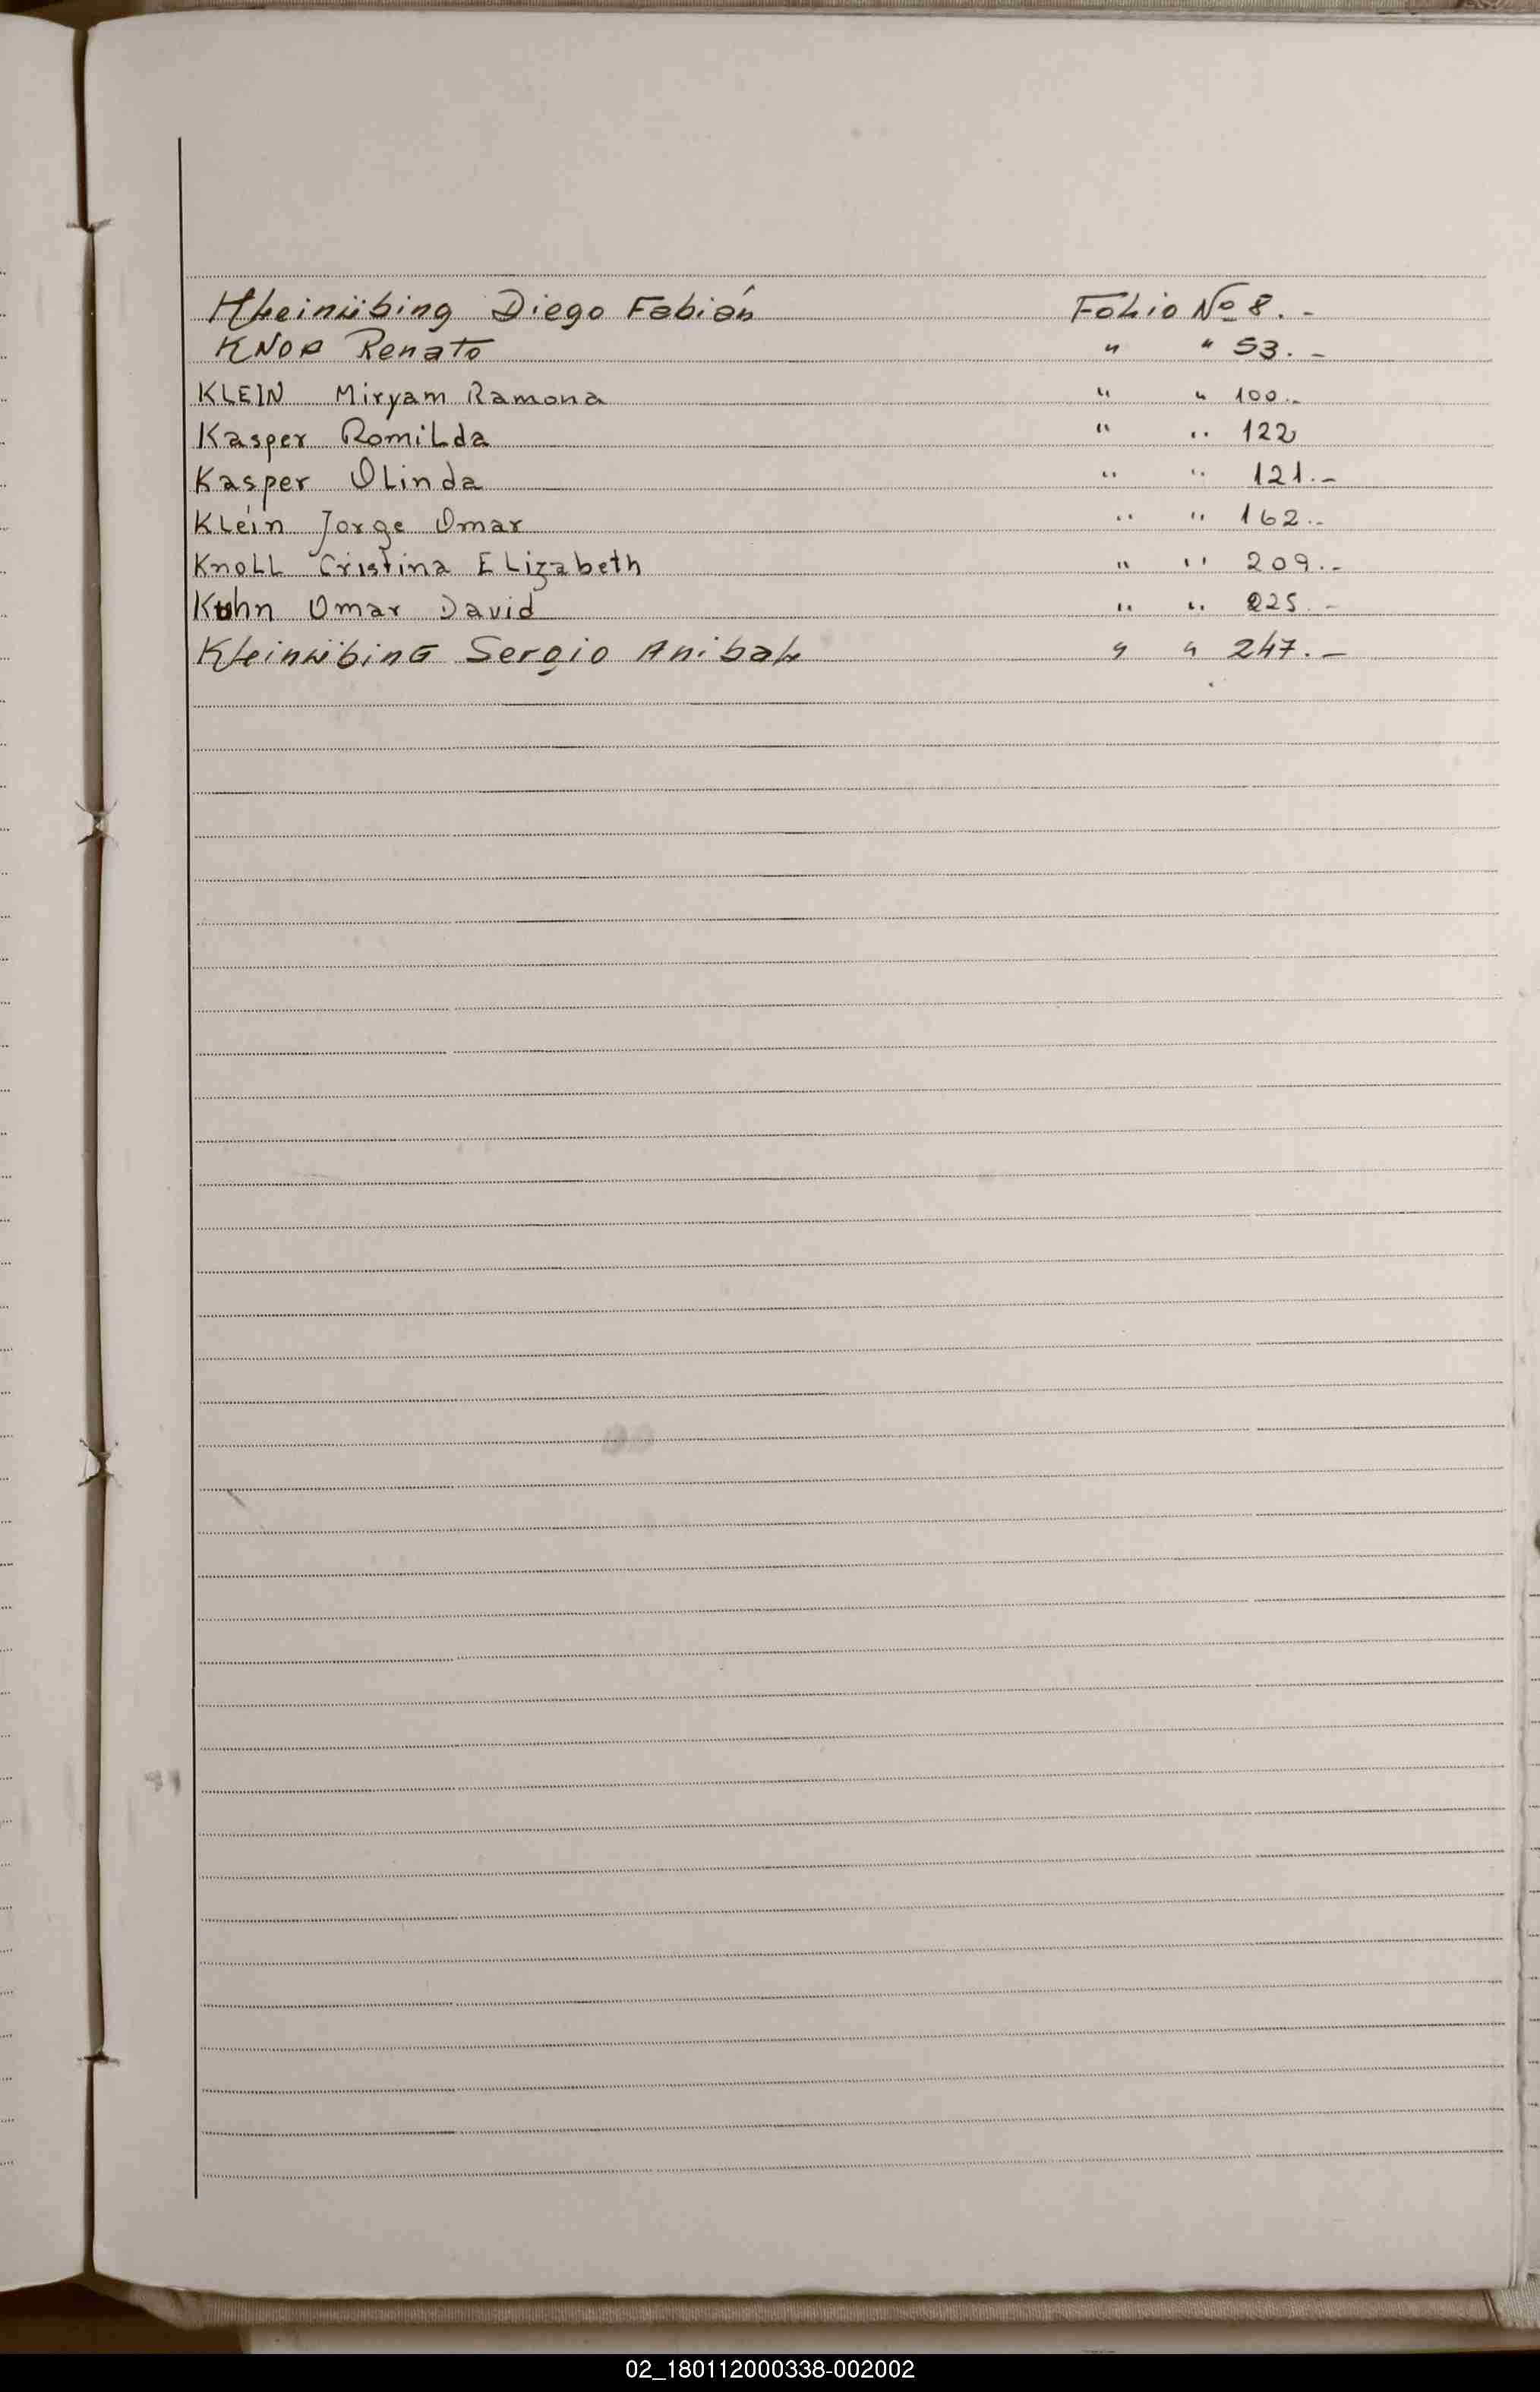 Kleinübing Diego Fabián Folio No 8.-
KNOP Renato " " 53.-
KLEIN Miryam Ramona " " 100.-
Kasper Romilda " " 122
Kasper Olinda " " 121.-
Klein Jorge Omar " " 162.-
Knoll Cristina Elizabeth " " 209.-
Kuhn Omar David " " 225.-
KleinübinG Sergio Anibal " " 247.-
02_180112000338-002002